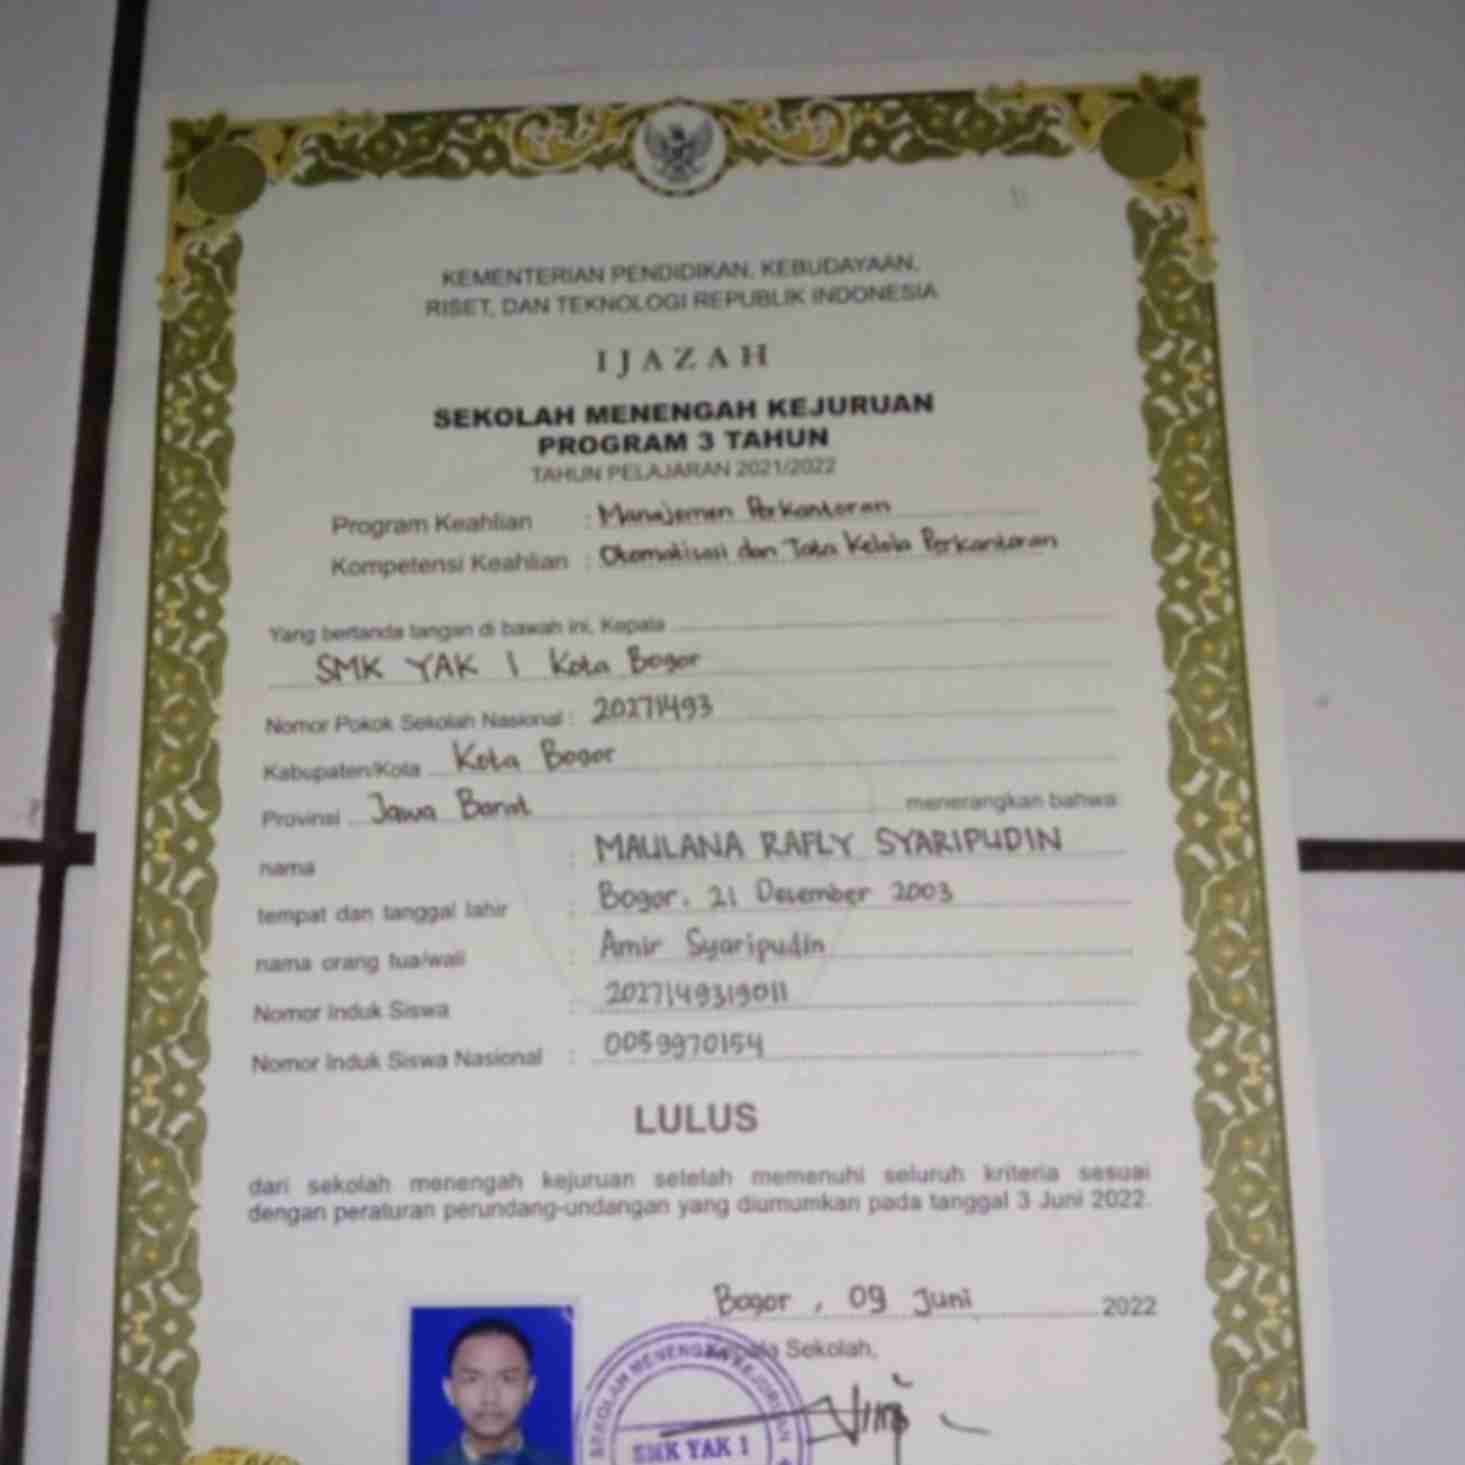 KEMENTERIAN PENDIDIKAN, KEBUDAYAAN,
RISET, DAN TEKNOLOGI REPUBLIK INDONESIA
IJAZAH
SEKOLAH MENENGAH KEJURUAN
PROGRAM 3 TAHUN
TAHUN PELAJARAN 2021/2022
Program Keahlian : Manajemen Perkantoran
Kompetensi Keahlian : Otomatisasi dan Tata Kelola Perkantoran
Yang bertanda tangan di bawah ini, Kepala
SMK YAK 1 Kota Bogor
Nomor Pokok Sekolah Nasional : 20271493
Kabupaten/Kota Kota Bogor
Provinsi Jawa Barat menerangkan bahwa:
nama : MAULANA RAFLY SYARIPUDIN
tempat dan tanggal lahir : Bogor, 21 Desember 2003
nama orang tua/wali : Amir Syaripudin
Nomor Induk Siswa : 2027149319011
Nomor Induk Siswa Nasional : 0059970154
LULUS
dari sekolah menengah kejuruan setelah memenuhi seluruh kriteria sesuai
dengan peraturan perundang-undangan yang diumumkan pada tanggal 3 Juni 2022.
Bogor, 09 Juni 2022
Kepala Sekolah,
SEKOLAH MENENGAH KEJURUAN
SMK YAK 1